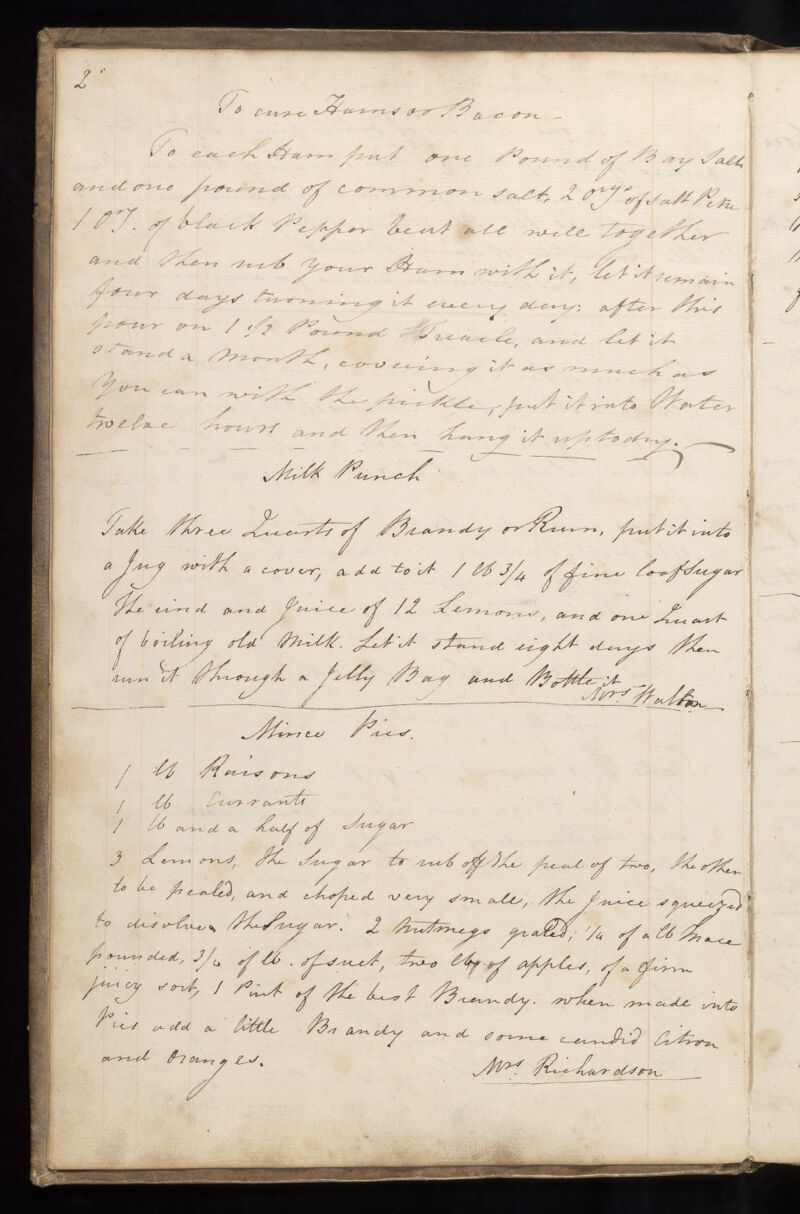 2
To cure Hams or Bacon -
To each Ham put one Pound of Bay Salt
and one pound of common salt, 2 ozs of salt Petre
1 oz. of black Pepper beat all well together
and then rub your Ham with it, let it remain
four days turning it every day; after this
pour on 1 1/2 Pound Treacle, and let it
stand a Month, covering it as much as
You can with the pickle, put it into Water
twelve hours and then hang it up to dry.
Milk Punch
Take three Quarts of Brandy or Rum, put it into
a Jug with a cover, add to it 1 lb 3/4 of fine loaf Sugar
The rind and Juice of 12 Lemons, and one Quart
of boiling old Milk. Let it stand eight days then
run it through a Jelly Bag and Bottle it
Mrs. Walton
Mince Pies.
1 lb Raisons
1 lb Currants
1 lb and a half of Sugar
3 Lemons, the Sugar to rub off the peal of two, the other
to be pealed, and choped very small, the Juice squeezed
to disolve the Sugar. 2 Nutmegs grated; 1/4 of a lb Mace
pounded, 3/4 of lb. of suet, two lbs of apples, of a firm
juicy sort, 1 Pint of the best Brandy. when made into
Pies add a little Brandy and some candid Citron
and Oranges.
Mrs. Richardson